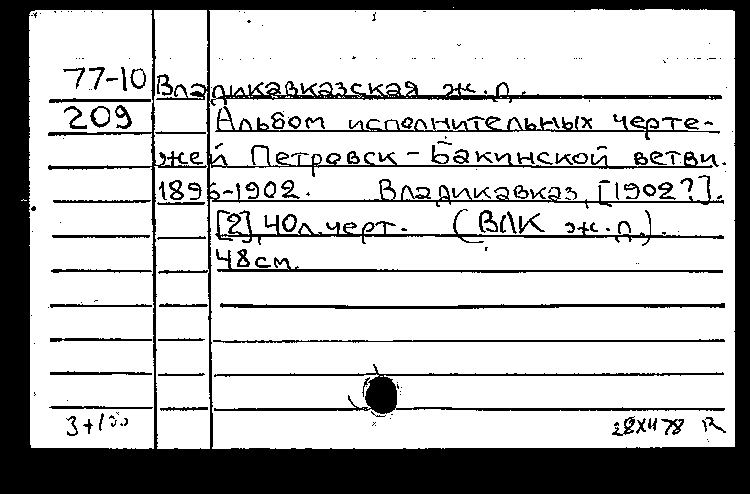 77-10 Владикавказская ж.д.
209 Альбом исполнительных черте-
жей Петровск-Бакинской ветви.
1896-1902. Владикавказ, [1902?].
[2], 40л.черт. (ВЛК ж.д.).
48см.